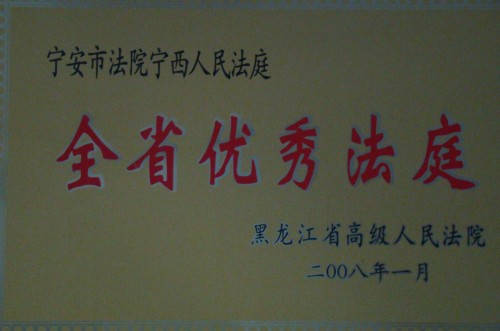 宁安市法院宁西人民法庭
全省优秀法庭
黑龙江省高级人民法院
二00八年一月